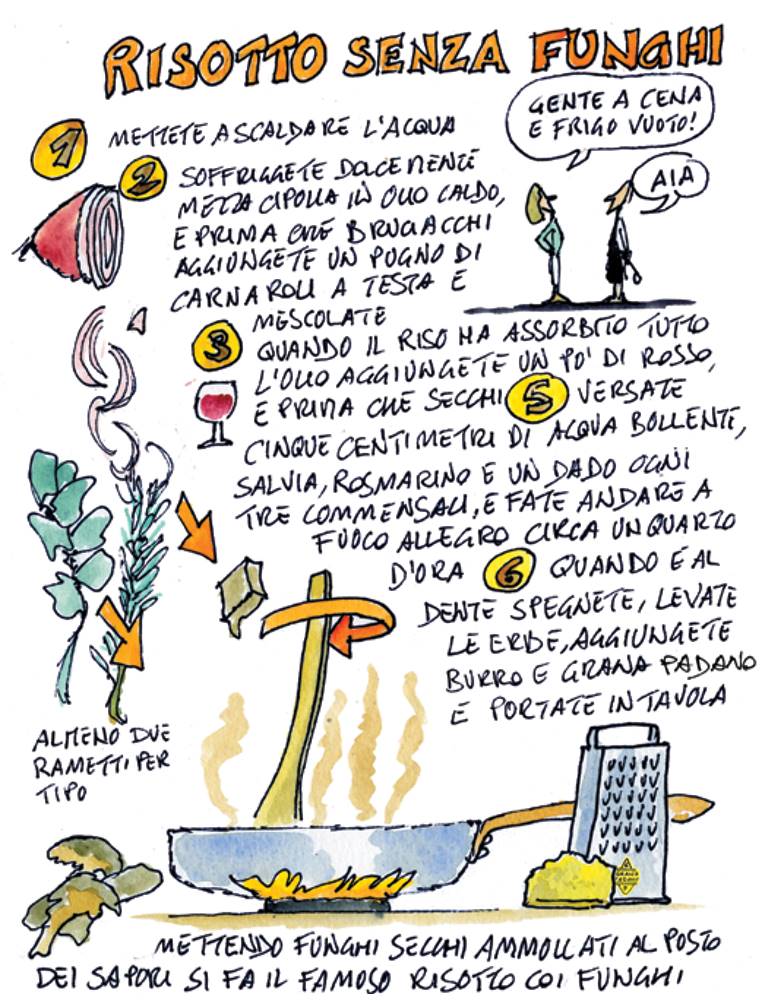 RISOTTO SENZA FUNGHI
GENTE A CENA
E FRIGO VUOTO!
AIA
1 METTETE A SCALDARE L'ACQUA
2 SOFFRIGGETE DOLCEMENTE
MEZZA CIPOLLA IN OLIO CALDO,
E PRIMA CHE BRUCIACCHI
AGGIUNGETE UN PUGNO DI
CARNAROLI A TESTA E
MESCOLATE
3 QUANDO IL RISO HA ASSORBITO TUTTO
L'OLIO AGGIUNGETE UN PO' DI ROSSO,
E PRIMA CHE SECCHI 5 VERSATE
CINQUE CENTIMETRI DI ACQUA BOLLENTE,
SALVIA, ROSMARINO E UN DADO OGNI
TRE COMMENSALI, E FATE ANDARE A
FUOCO ALLEGRO CIRCA UN QUARTO
D'ORA 6 QUANDO E AL
DENTE SPEGNETE, LEVATE
LE ERBE, AGGIUNGETE
BURRO E GRANA PADANO
E PORTATE IN TAVOLA
ALMENO DUE
RAMETTI PER
TIPO
GRANA
PADANO
METTENDO FUNGHI SECCHI AMMOLLATI AL POSTO
DEI SAPORI SI FA IL FAMOSO RISOTTO COI FUNGHI